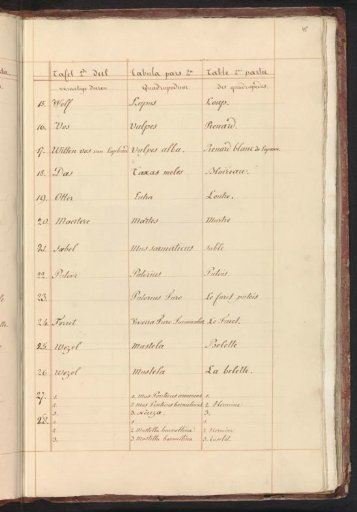 Tafel 2de deel Tabula pars 2da Table 2me partie
viervoetige dieren Quadrupedium des quadrupedes.
15. Wolf Lupus Loup.
16. Vos Vulpes Renard.
17. Witten vos van Vulpes alba. Renard blanc de
18. Das Taxus meles Blaireau.
19. Otter Lutra Loutre.
20. Maerter Martes Martre
21. Sabel Mus sarmaticus Sable
22. Putois
23. Putorius Furo Le furet putois
24. Foret Viverra Furo Le Furet.
25. Wezel Mustela Belette
26. Wezel Mustela La belette.
27. 1. 1. Mus Ponticus 1.
2. 2. Mus Ponticus 2. L'hermine
3. 3. 3.
28. 1. 1 1
2. 2. Mustella 2. Hermine
3. 3. Mustella 3.